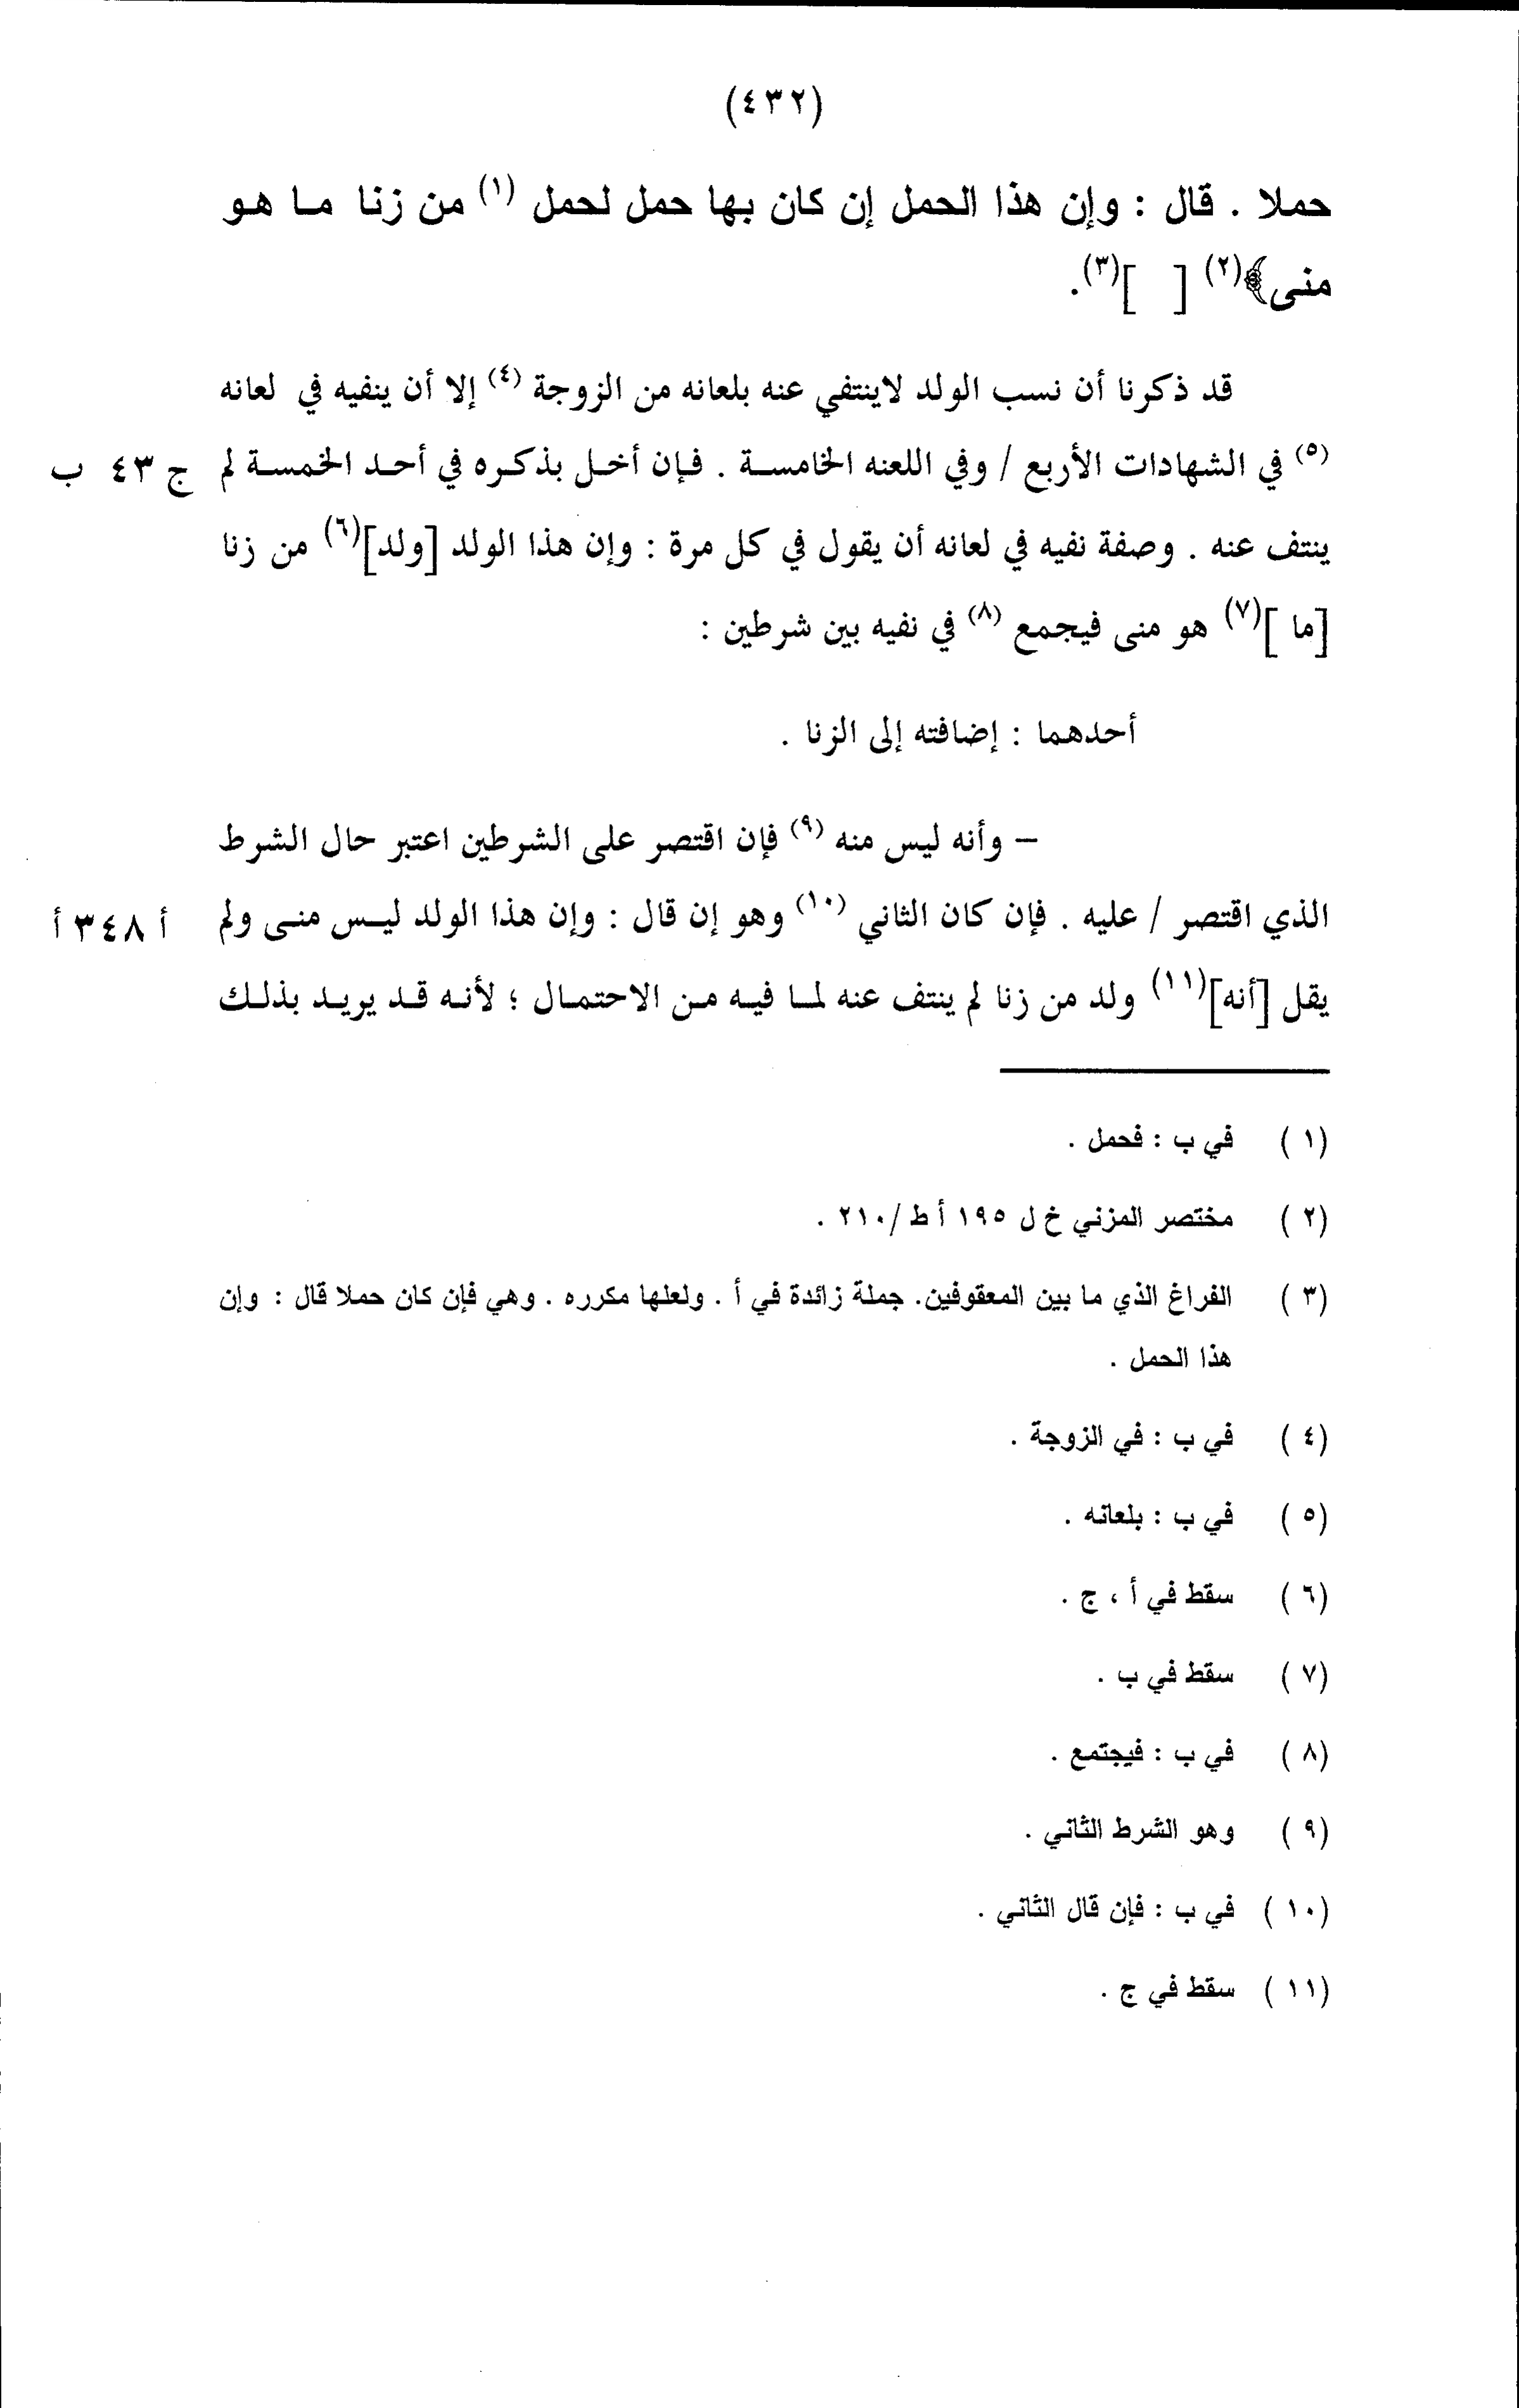 (٤٣٢)
حملا . قال : وإن هذا الحمل إن كان بها حمل لحمل (١) من زنا ما هو
منى﴾(٢) [ ](٣).
قد ذكرنا أن نسب الولد لاينتفي عنه بلعانه من الزوجة (٤) إلا أن ينفيه في لعانه
(٥) في الشهادات الأربع / وفي اللعنه الخامسة . فإن أخل بذكره في أحد الخمسة لم ج ٤٣ ب
ينتف عنه . وصفة نفيه في لعانه أن يقول في كل مرة : وإن هذا الولد [ولد](٦) من زنا
[ما ](٧) هو منى فيجمع (٨) في نفيه بين شرطين :
أحدهما : إضافته إلى الزنا .
– وأنه ليس منه (٩) فإن اقتصر على الشرطين اعتبر حال الشرط
الذي اقتصر / عليه . فإن كان الثاني (١٠) وهو إن قال : وإن هذا الولد ليس منى ولم أ ٣٤٨ أ
يقل [أنه](١١) ولد من زنا لم ينتف عنه لما فيه من الاحتمال ؛ لأنه قد يريد بذلك
(١ ) في ب : فحمل .
(٢ ) مختصر المزني خ ل ١٩٥ أ ط /٢١٠ .
(٣ ) الفراغ الذي ما بين المعقوفين. جملة زائدة في أ . ولعلها مكرره . وهي فإن كان حملا قال : وإن
هذا الحمل .
(٤ ) في ب : في الزوجة .
(٥ ) في ب : بلعانه .
(٦ ) سقط في أ ، ج .
(٧ ) سقط في ب .
(٨ ) في ب : فيجتمع .
(٩ ) وهو الشرط الثاني .
(١٠ ) في ب : فإن قال الثاني .
(١١ ) سقط في ج .